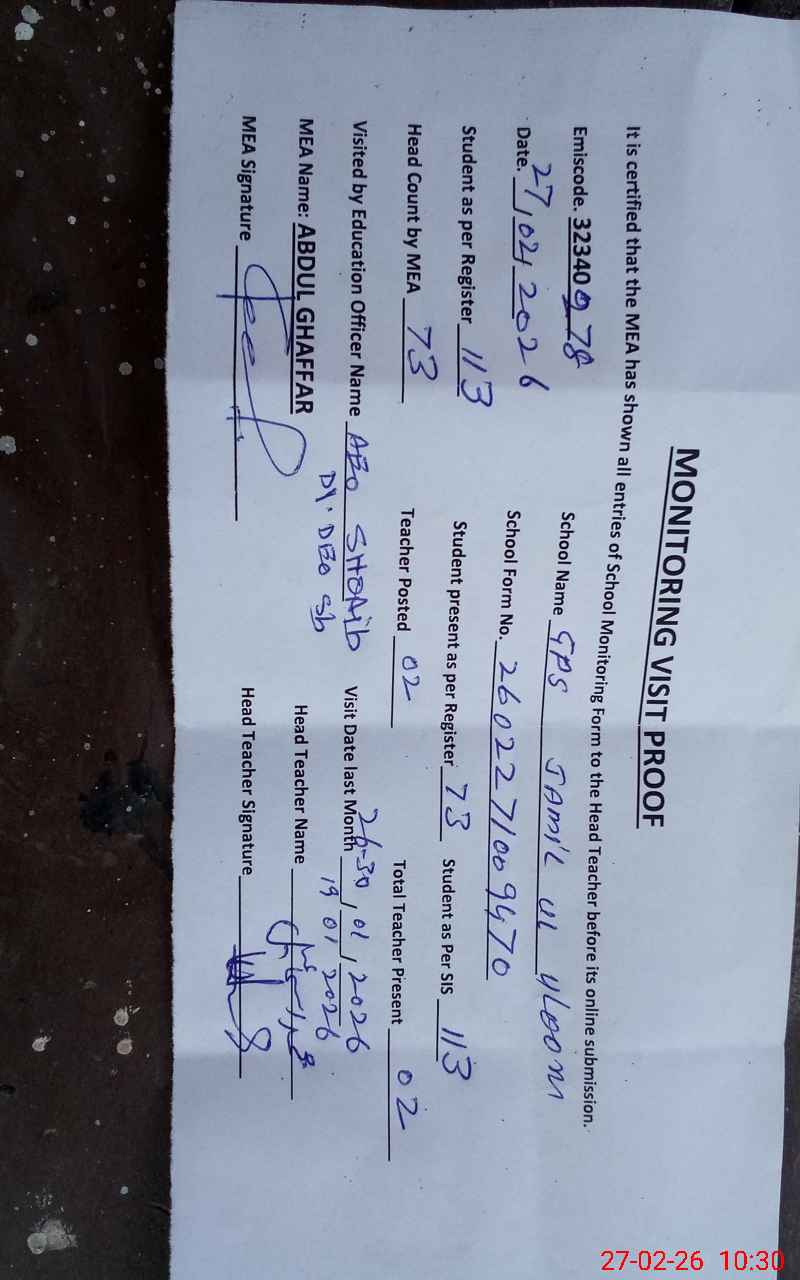 MONITORING VISIT PROOF
It is certified that the MEA has shown all entries of School Monitoring Form to the Head Teacher before its online submission.
Emiscode. 32340978 School Name GPS JAMIL UL ULOOM
Date. 27,02,2026 School Form No. 2602271009470
Student as per Register 113 Student present as per Register 73 Student as Per SIS 113
Head Count by MEA 73 Teacher Posted 02 Total Teacher Present 02
Visited by Education Officer Name AEO SHOAib Visit Date last Month 26-30, 01, 2026
DY. DEO Sb 19 01 2026
MEA Name: ABDUL GHAFFAR Head Teacher Name
MEA Signature Head Teacher Signature
27-02-26 10:30